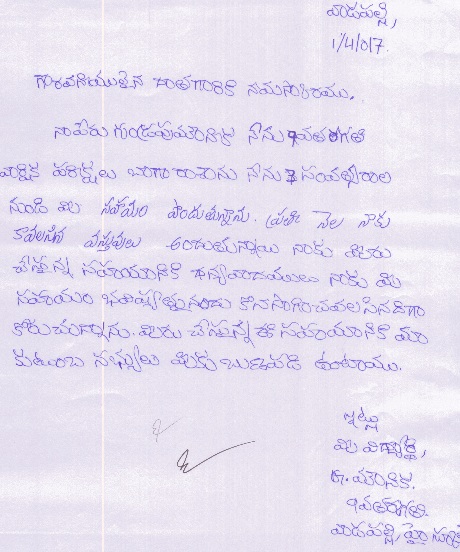 వాడపల్లి,
1/4/017.
గౌరవనియులైన దాతగారికి నమస్కారము.
నాపేరు గుండెపు మౌనిక నేను 9వతరగతి
వార్షిక పరిక్షలు బాగా రాశాను నేను 3 సంవత్సరాల
నుండి మి సహాయం పొందుతున్నాను. ప్రతి నెల నాకు
కావలసిన వస్తువులు అందుతున్నాయి నాకు మీరు
చేస్తున్న సహయానికి ధన్యావాదములు నాకు మి
సహయం భవిష్యత్తునందు కొనసాగించవలసినదిగా
కోరుచున్నాను. మిరు చేస్తున్న ఈ సహయానికి మా
కుటుంబ సభ్యులు మికు ఋణపడి ఉంటాము.
ఇట్లు
మి విద్యార్థి,
గు. మౌనిక.
9వతరగతి.
వాడపల్లి,